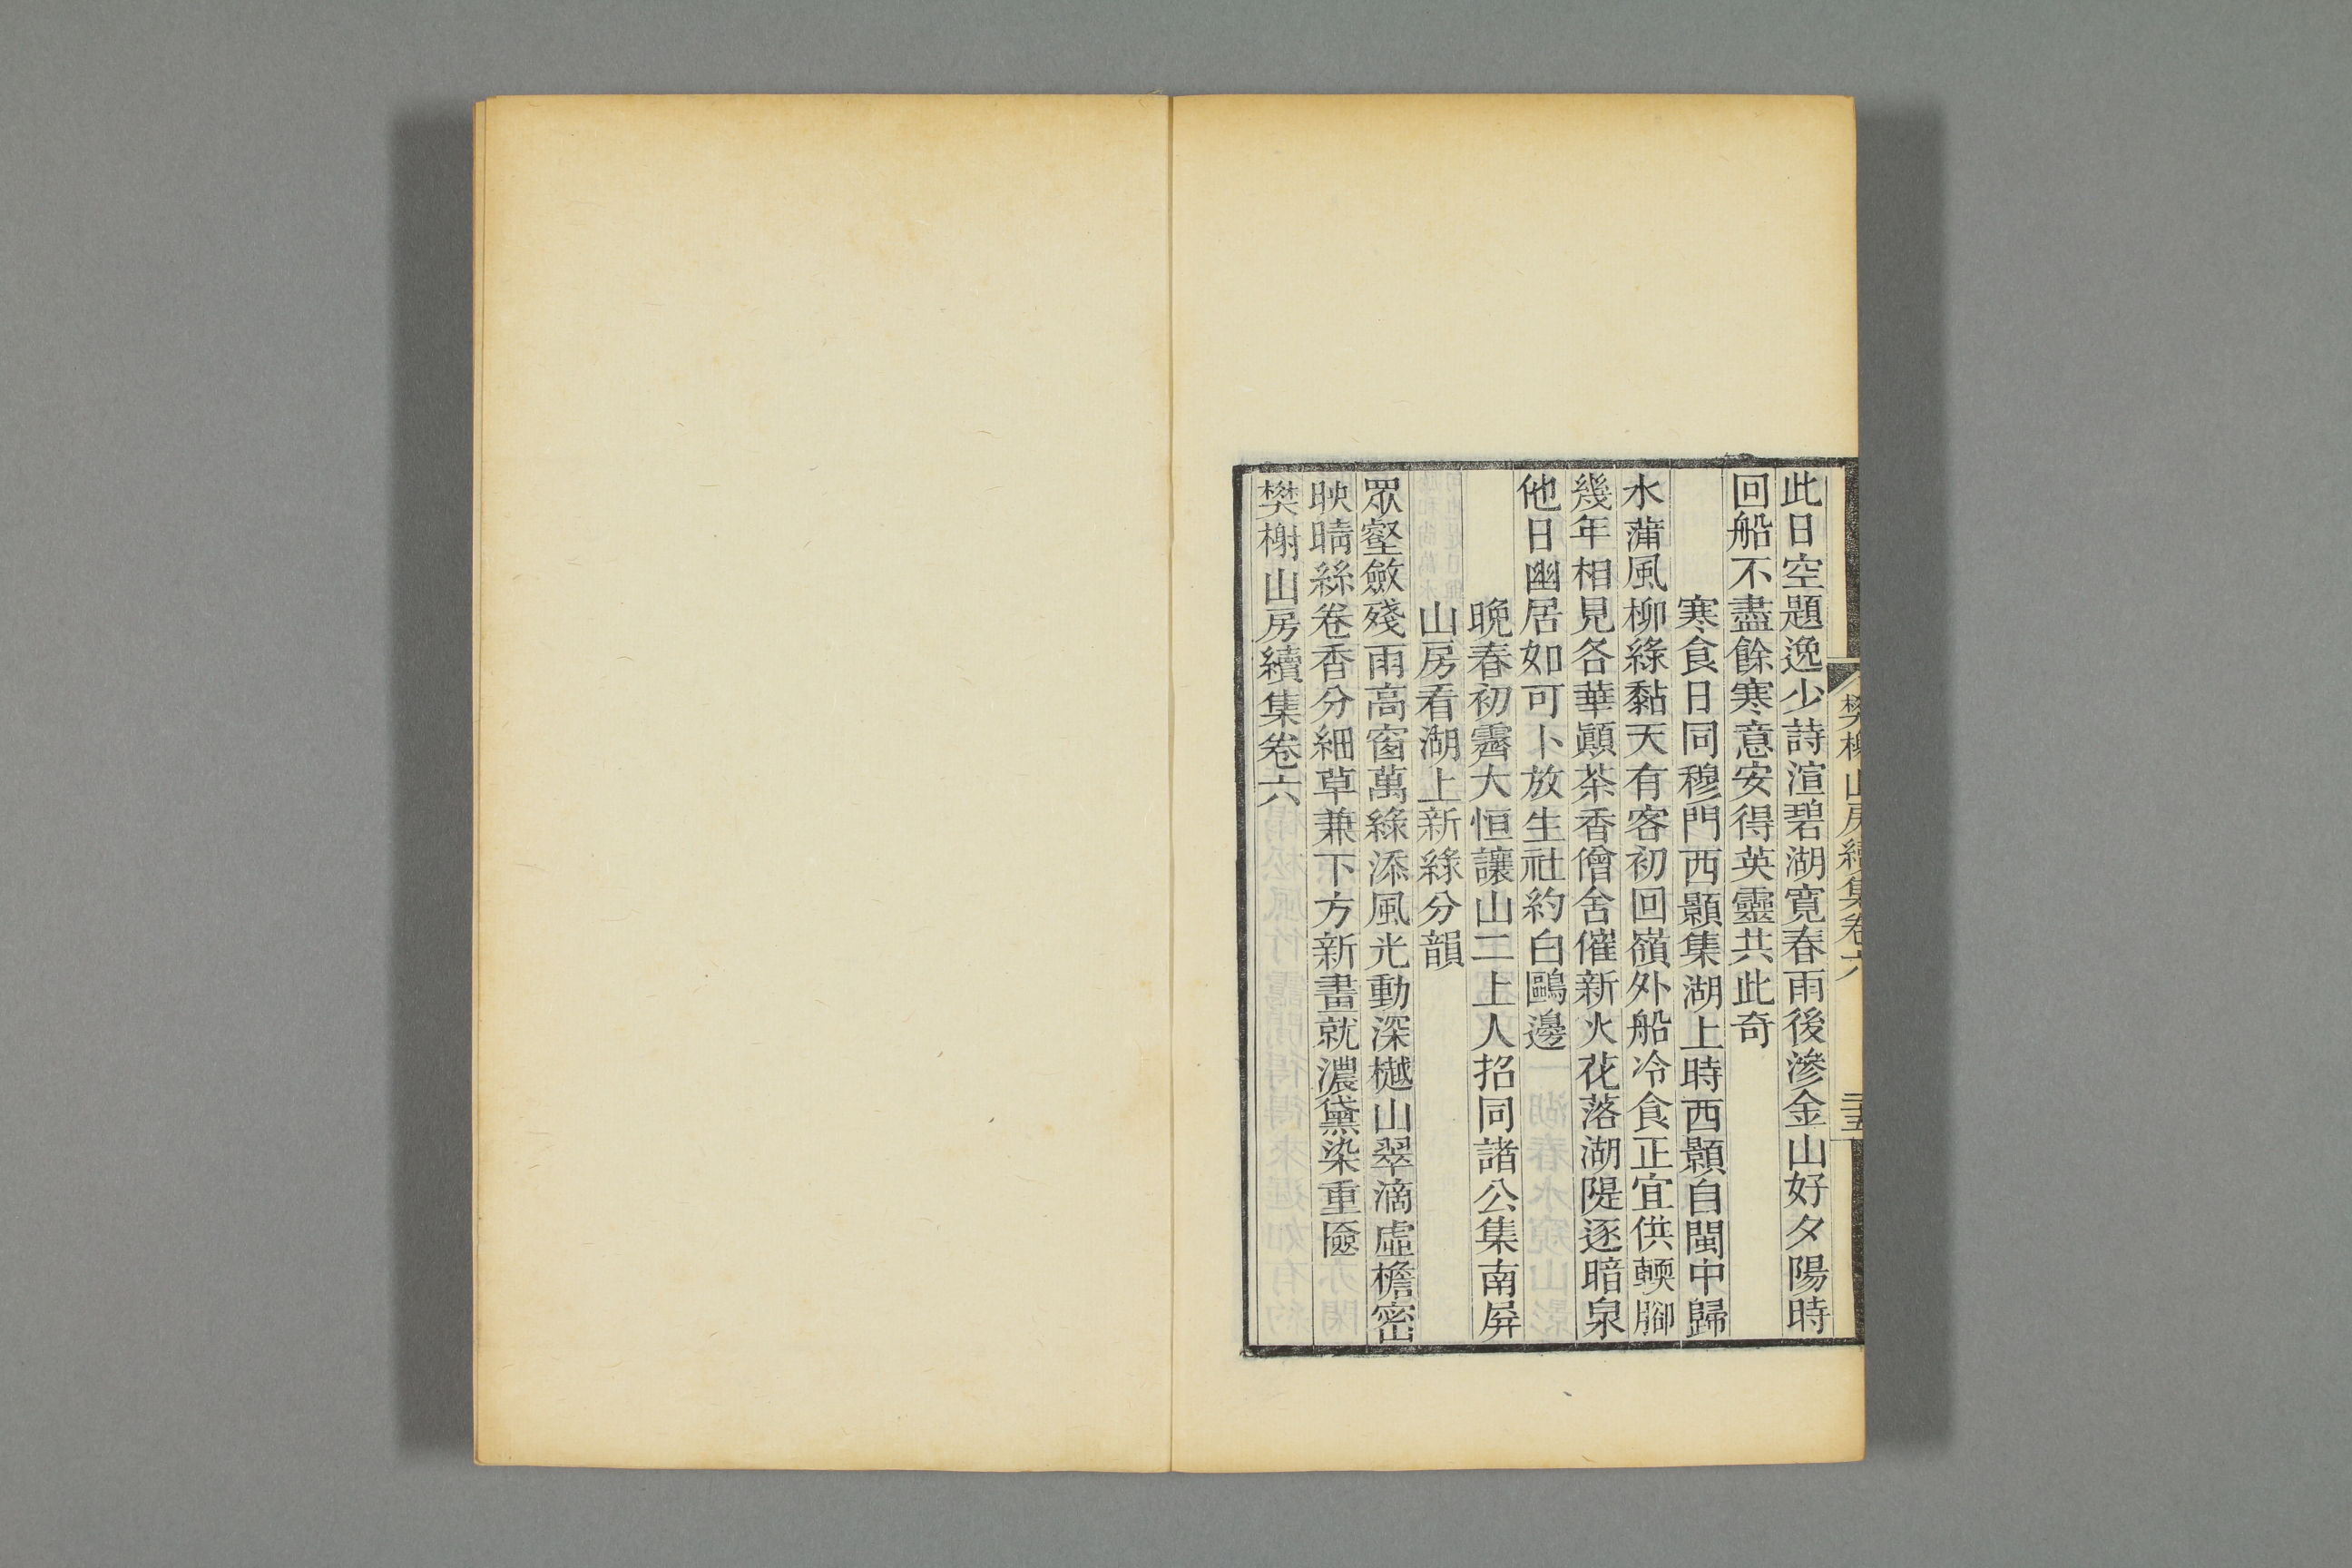 樊榭山房續集卷六
三五
此日空題逸少詩渲碧湖寛春雨後滲金山好夕陽時
回船不盡餘寒意安得英靈共此奇
寒食日同穆門西顥集湖上時西顥自閩中歸
水蒲風柳綠黏天有客初回嶺外船冷食正宜供輭腳
幾年相見各華顚茶香僧舍催新火花落湖隄逐暗泉
他日幽居如可卜放生社約白鷗邊
晚春初霽大恒讓山二上人招同諸公集南屏
山房看湖上新綠分韻
眾壑斂殘雨高窗萬綠添風光動深樾山翠滴虛檐密
映晴絲卷香分細草兼下方新畫就濃黛染重匳
樊榭山房續集卷六